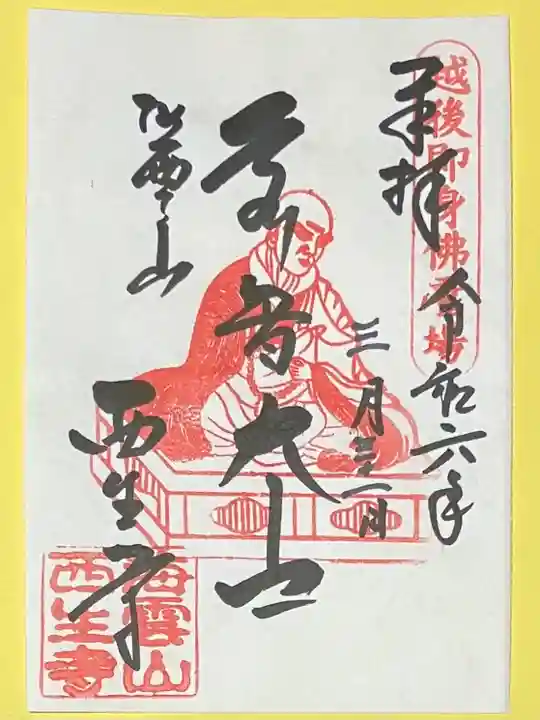 越後即身佛霊場
奉拝
令和六年
三月三十一日
智大士
海雲山
西生寺
海雲山
西生寺